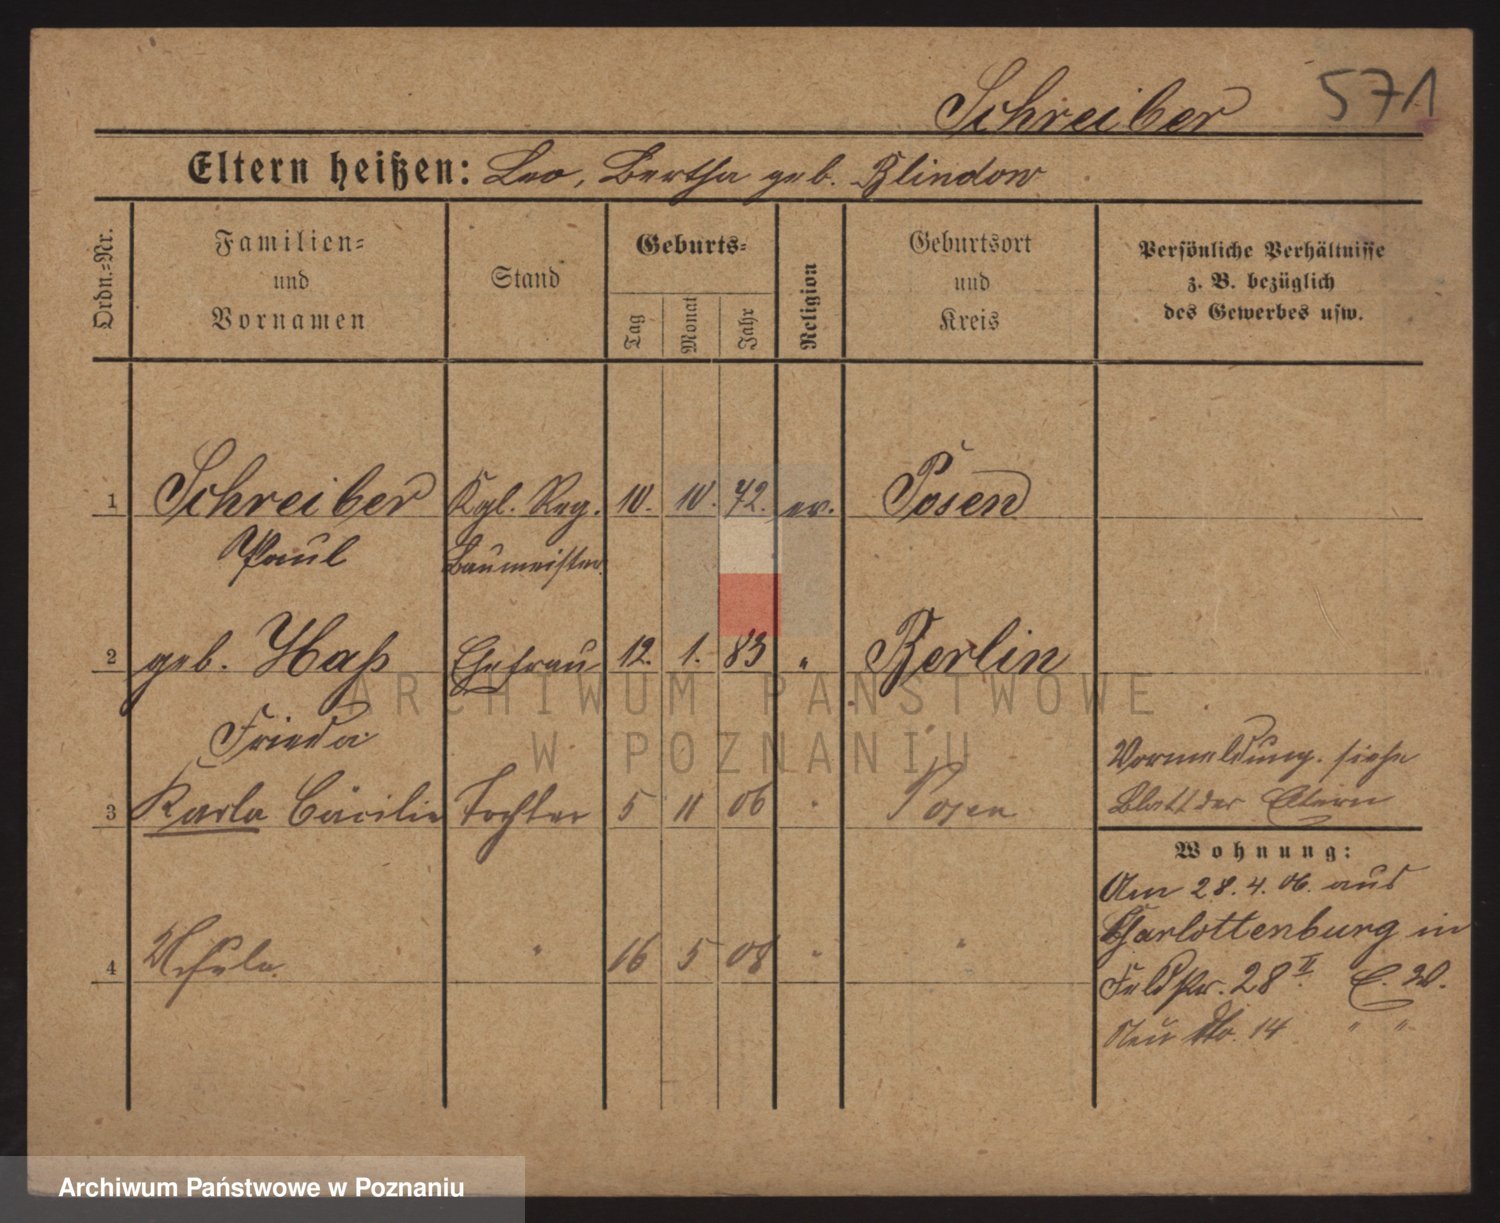 Schreiber 571
Eltern heißen: Leo, Bertha geb. Blindow
Ordn.=Nr.
Familien=
und
Vornamen
Stand
Geburts=
Tag
Monat
Jahr
Religion
Geburtsort
und
Kreis
Persönliche Verhältnisse
z. B. bezüglich
des Gewerbes usw.
1 Schreiber Kgl. Reg. 10. 10. 72. ev. Posen
Paul Baumeister
2 geb. Haß Ehefrau 12. 1. 83 " Berlin
Frieda
3 Karla Cäcilie Tochter 5 11 06 " Posen
Vormeldung. siehe
Blatt der Eltern
4 " 16 5 08 " "
Wohnung:
Am 28. 4. 06. aus
Charlottenburg in
Feldstr. 28 II E. W.
Neu No. 14 " "
ARCHIWUM PAŃSTWOWE
W POZNANIU
Archiwum Państwowe w Poznaniu